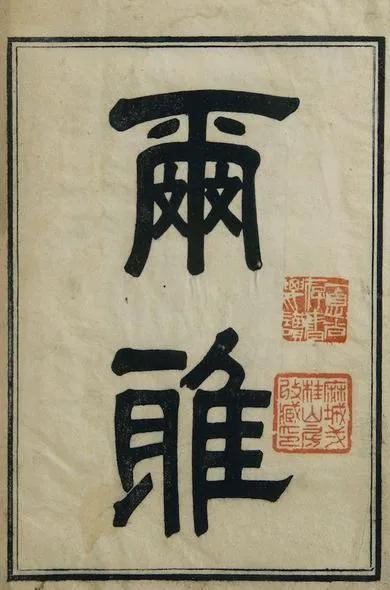 爾雅
麻城
桂山房
收藏印